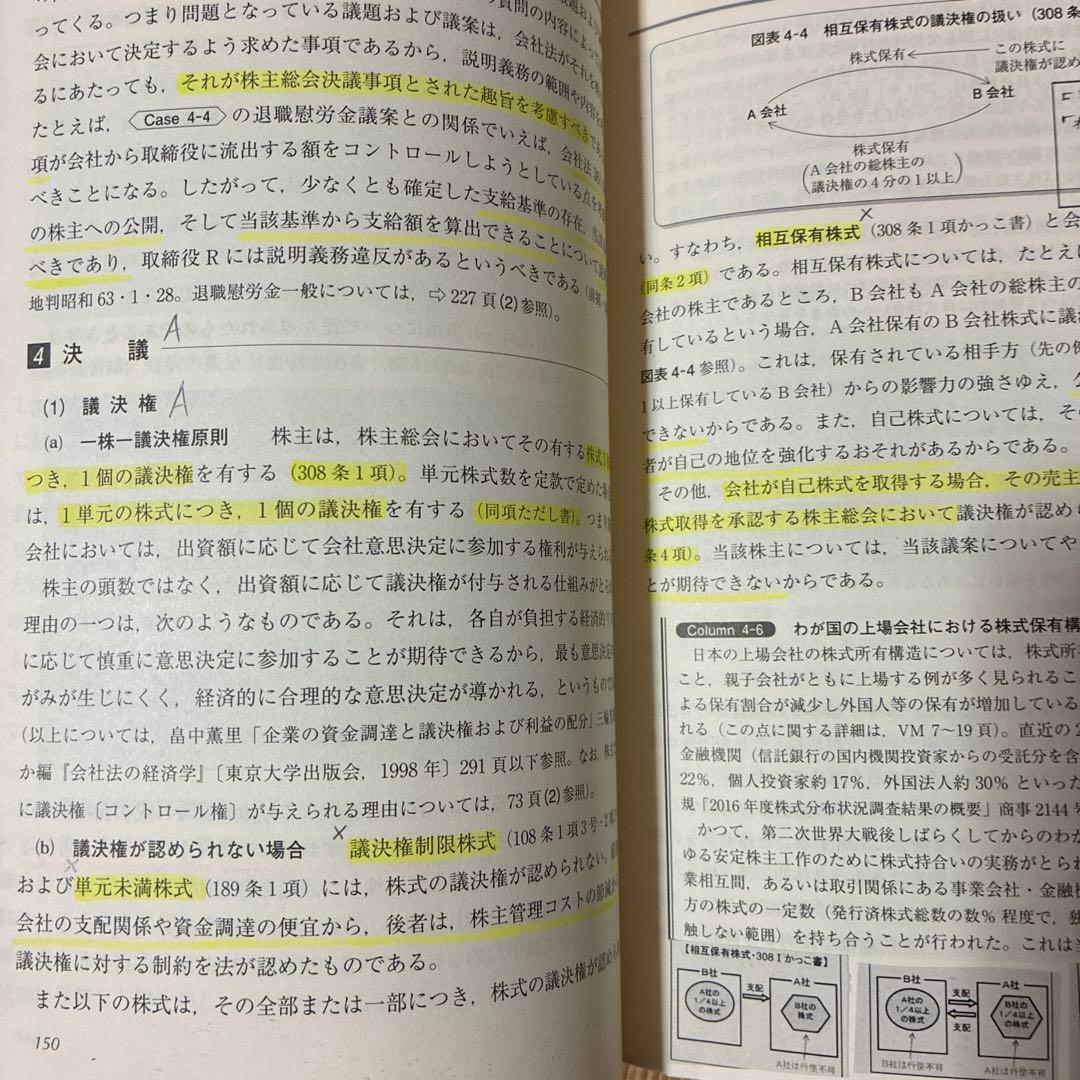 の質問の内容によっ
ってくる。つまり問題となっている議題および議案は，会社法がそれを
会において決定するよう求めた事項であるから，説明義務の範囲や内容を
るにあたっても，それが株主総会決議事項とされた趣旨を考慮すべきであ
たとえば，Case 4-4の退職慰労金議案との関係でいえば，会社法
項が会社から取締役に流出する額をコントロールしようとしている点を
べきことになる。したがって，少なくとも確定した支給基準の存在，
の株主への公開，そして当該基準から支給額を算出できることについて
べきであり，取締役Rには説明義務違反があるというべきである
地判昭和63・1・28。退職慰労金一般については，⇨227頁(2)参照)。
4 決 議 A
(1) 議決権 A
(a) 一株一議決権原則 株主は，株主総会においてその有する株式1
つき，1個の議決権を有する（308条1項）。単元株式数を定款で定めた場
は，1単元の株式につき，1個の議決権を有する（同項ただし書）。つまり
会社においては，出資額に応じて会社意思決定に参加する権利が与えられ
株主の頭数ではなく，出資額に応じて議決権が付与される仕組みがとら
理由の一つは，次のようなものである。それは，各自が負担する経済的
に応じて慎重に意思決定に参加することが期待できるから，最も意思決定
がみが生じにくく，経済的に合理的な意思決定が導かれる，というもので
（以上については，畠中薫里「企業の資金調達と議決権および利益の配分」三輪
か編『会社法の経済学』〔東京大学出版会，1998年〕291頁以下参照。なお，株
に議決権〔コントロール権〕が与えられる理由については，73頁(2)参照）。
(b) 議決権が認められない場合 × 議決権制限株式（108条1項3号・2
×
および単元未満株式（189条1項）には，株式の議決権が認められない。
会社の支配関係や資金調達の便宜から，後者は，株主管理コストの節減
議決権に対する制約を法が認めたものである。
また以下の株式は，その全部または一部につき，株式の議決権が認め
150
図表4-4 相互保有株式の議決権の扱い（308条
株式保有
この株式に
議決権が認め
A会社
B会社
株式保有
（A会社の総株主の
議決権の4分の1以上）
×
い。すなわち，相互保有株式（308条1項かっこ書）と会
（同条2項）である。相互保有株式については，たとえ
会社の株主であるところ，B会社もA会社の総株主の
有しているという場合，A会社保有のB会社株式に議
図表4-4参照）。これは，保有されている相手方（先の例
1以上保有しているB会社）からの影響力の強さゆえ，
できないからである。また，自己株式については，そ
者が自己の地位を強化するおそれがあるからである。
その他，会社が自己株式を取得する場合，その売主
株式取得を承認する株主総会において議決権が認め
条4項）。当該株主については，当該議案についてや
とが期待できないからである。
Column 4-6 わが国の上場会社における株式保有構
日本の上場会社の株式所有構造については，株式所
こと，親子会社がともに上場する例が多く見られるこ
よる保有割合が減少し外国人等の保有が増加している
れる（この点に関する詳細は，VM 7〜19頁）。直近の2
金融機関（信託銀行の国内機関投資家からの受託分を含
22%，個人投資家約17%，外国法人約30%といった
規『2016年度株式分布状況調査結果の概要」商事2144号
かつて，第二次世界大戦後しばらくしてからのわか
ゆる安定株主工作のために株式持合いの実務がとられ
業相互間，あるいは取引関係にある事業会社・金融機
方の株式の一定数（発行済株式総数の数%程度で，独
触しない範囲）を持ち合うことが行われた。これは
【相互保有株式・308Ⅰかっこ書】
B社
A社の
1/4以上
の株式
支配
A社
B社の
株式
A社は行使不可
B社
A社の
1/4以上
の株式
支配
支配
A社
B社の
1/4以上
の株式
B社は行使不可
A社は行使不可